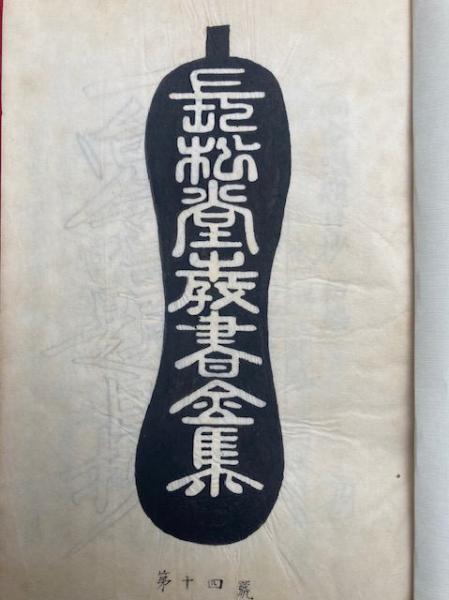 長松堂蔵書全集
第十四號